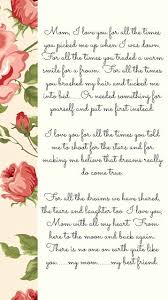 Mom, I love you for all the times
you picked me up when I was down.
For all the times you traded a warm
smile for a frown. For all the times
you brushed my hair and tucked me
into bed. Or needed something for
yourself and put me first instead.
I love you for all the times you told
me to shoot for the stars and for
making me believe that dreams really
do come true.
For all the dreams we have shared,
the tears and laughter too. I love you
Mom with all my heart. From
here to the moon and back again.
There is no one on earth quite like
you.....my mom.....my best friend.